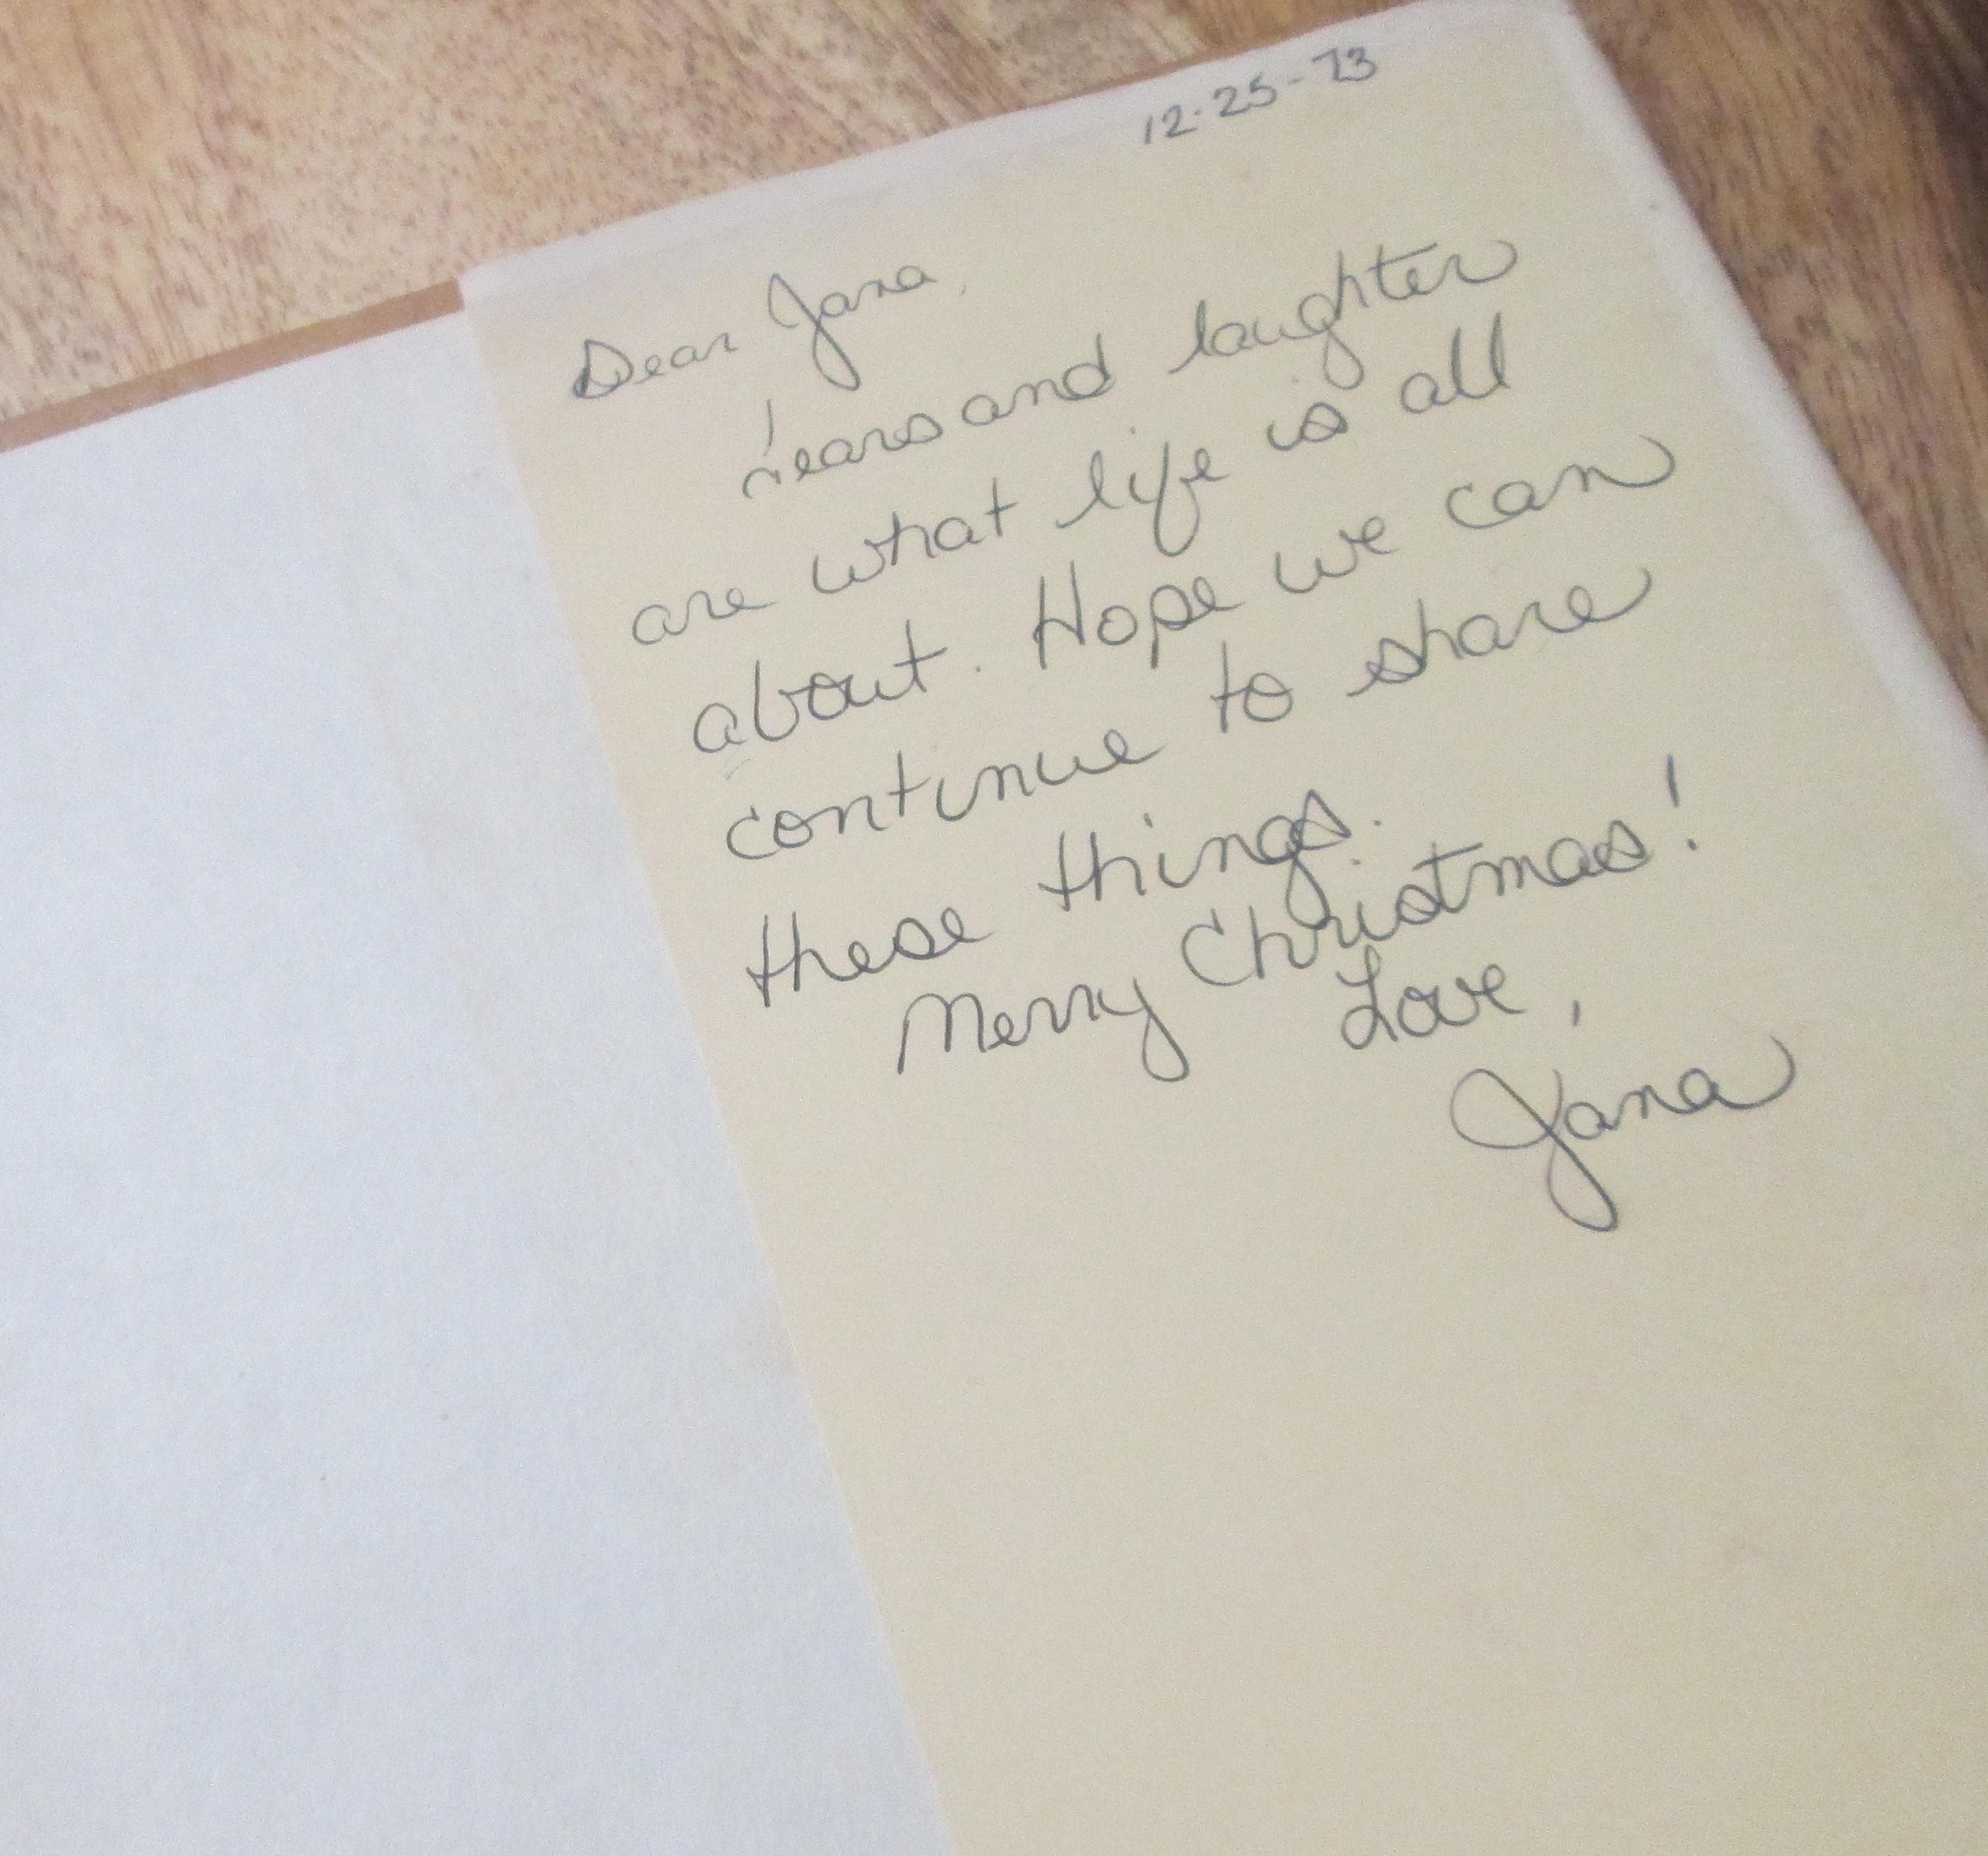 12-25-73
Dear Jana,
Tears and laughter
are what life is all
about. Hope we can
continue to share
these things.
Merry Christmas!
Love,
Jana